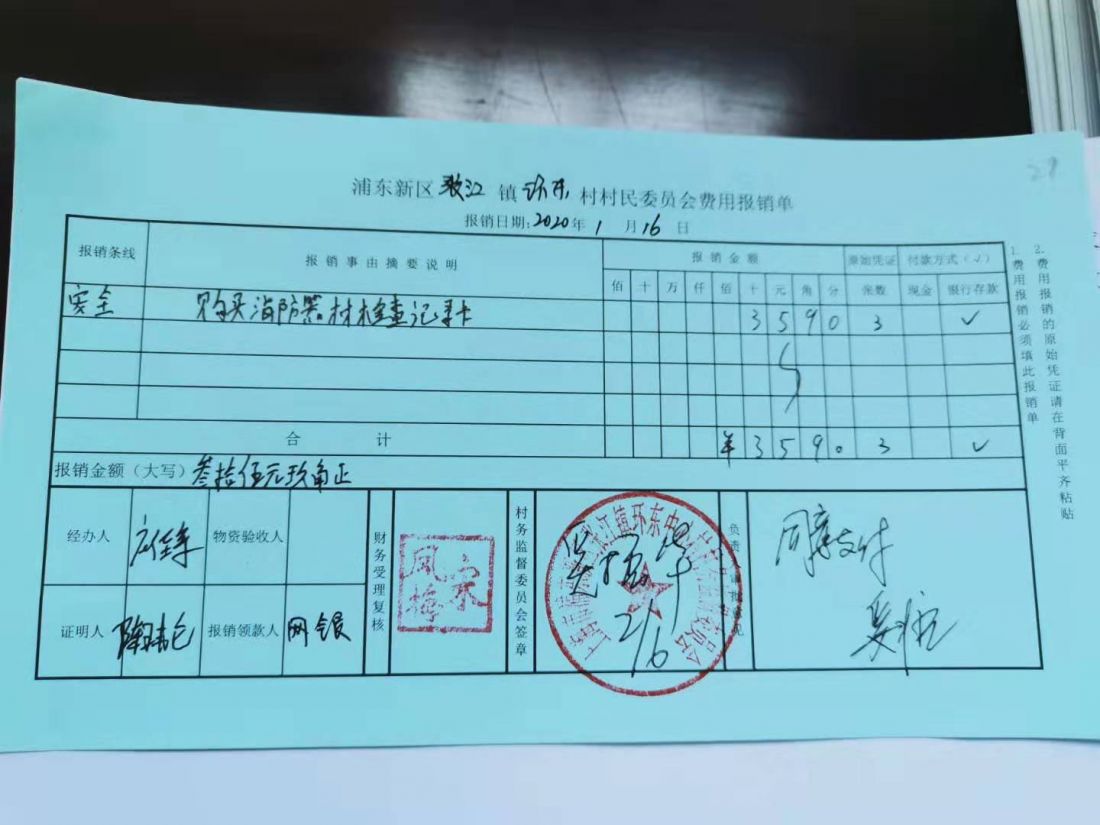 29
浦东新区 张江 镇 环东 村村民委员会费用报销单
报销日期:2020年 1 月 16 日
报销条线 报销事由摘要说明 报销金额 原始凭证 付款方式(√)
佰 十 万 仟 佰 十 元 角 分 张数 现金 银行存款
安全 购买消防器材检查记录卡 3 5 9 0 3 ✓
合计 ¥ 3 5 9 0 3 ✓
报销金额(大写) 叁拾伍元玖角正
经办人 物资验收人
证明人 报销领款人 网银
财务受理复核
宋凤梅
村务监督委员会签章
负责
同意支付
1.费用报销必须填此报销单
2.费用报销的原始凭证请在背面平齐粘贴